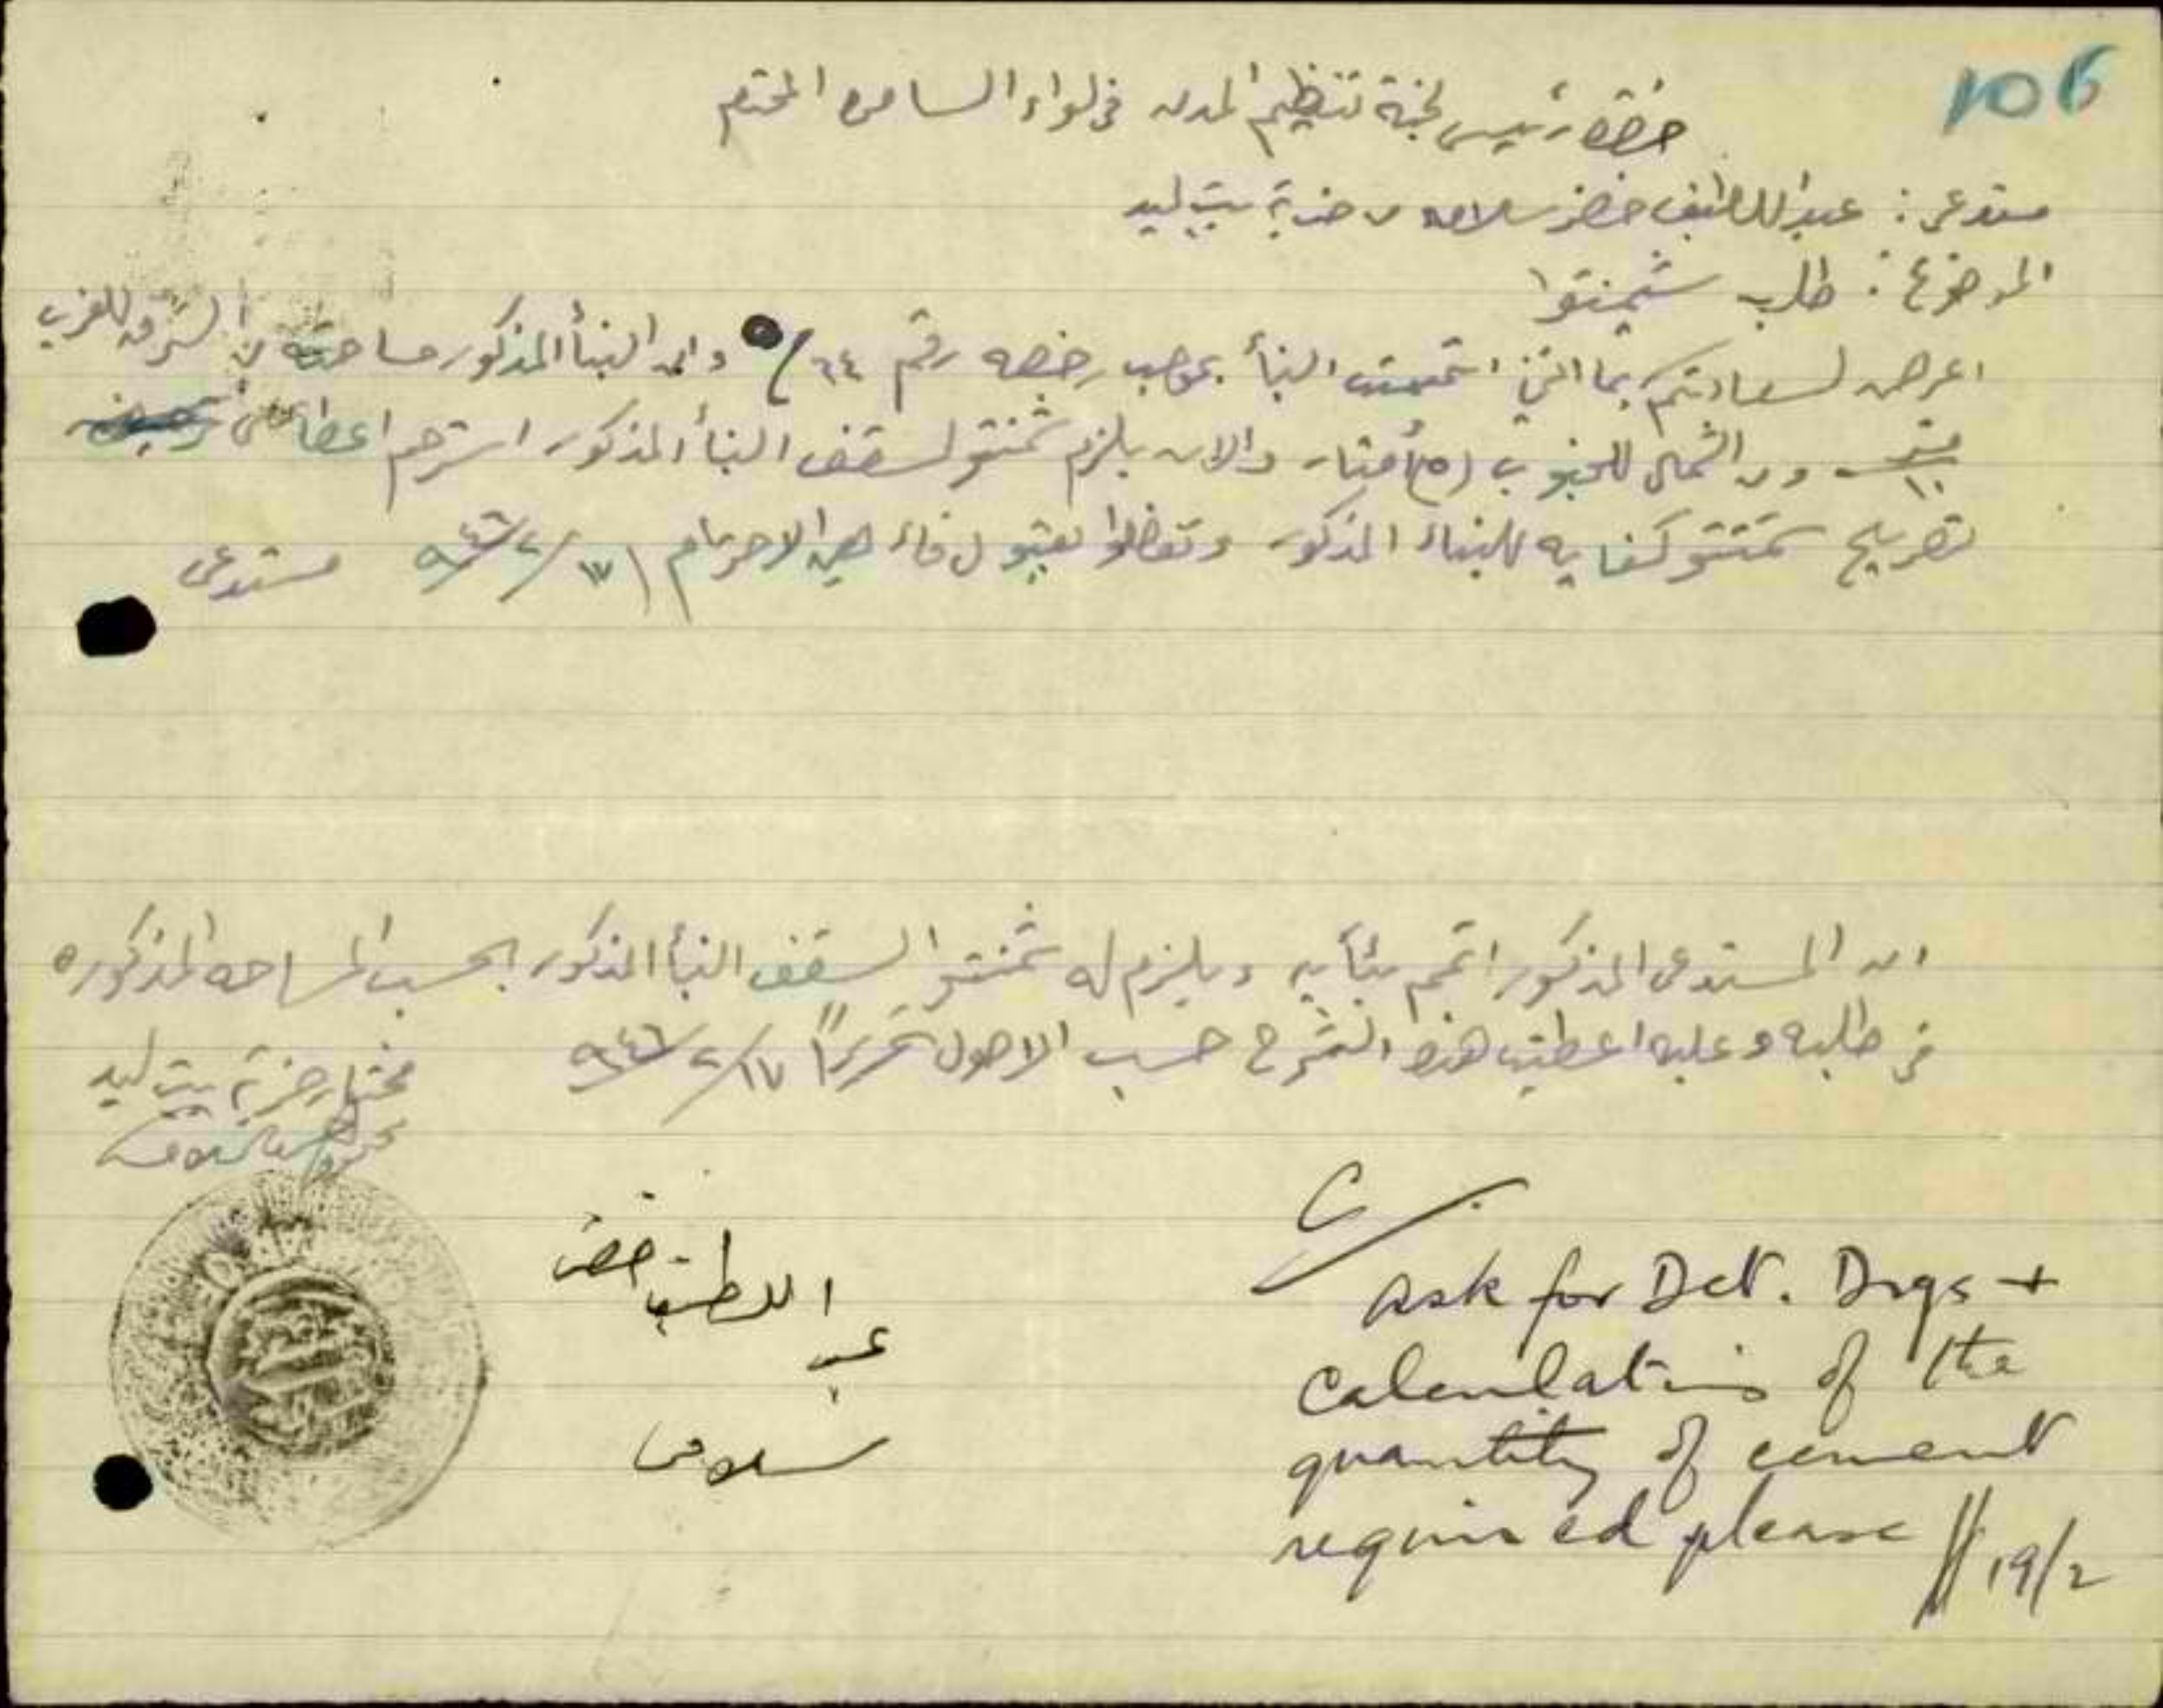 106
حضرة رئيس لجنة تنظيم المدن في لواء السامره المحترم
مستدعي: عبد اللطيف خضر سلامه من خربة بيت ليد
الموضوع: طلب شمنتوا
اعرض لسعادتكم بما انني اتممت البنأ بموجب رخصه رقم ٦٤/ وان البنأ المذكور مساحته من الشرق للغرب
١٠ متر ومن الشمال للجنوب (٥) أمتار والان يلزم شمنتو لسقف البنأ المذكور استرحم اعطائي
تصريح شمنتو كفايه للبناء المذكور وتفضلوا بقبول فائق الاحترام ١٧/٢/٩٤٦ مستدعي
ان المستدعي المذكور اتمم بنأيه ويلزم له شمنتوا لسقف البنأ المذكور بحسب المساحه المذكوره
في طلبه وعليه اعطيت هذا الشرح حسب الاصول تحريراً ١٧/٢/٩٤٦
مختار خربة بيت ليد
عبد اللطيف خضر
سلامي
C/
Ask for Det. Drgs +
Calculations of the
quantity of cement
required please
19/2